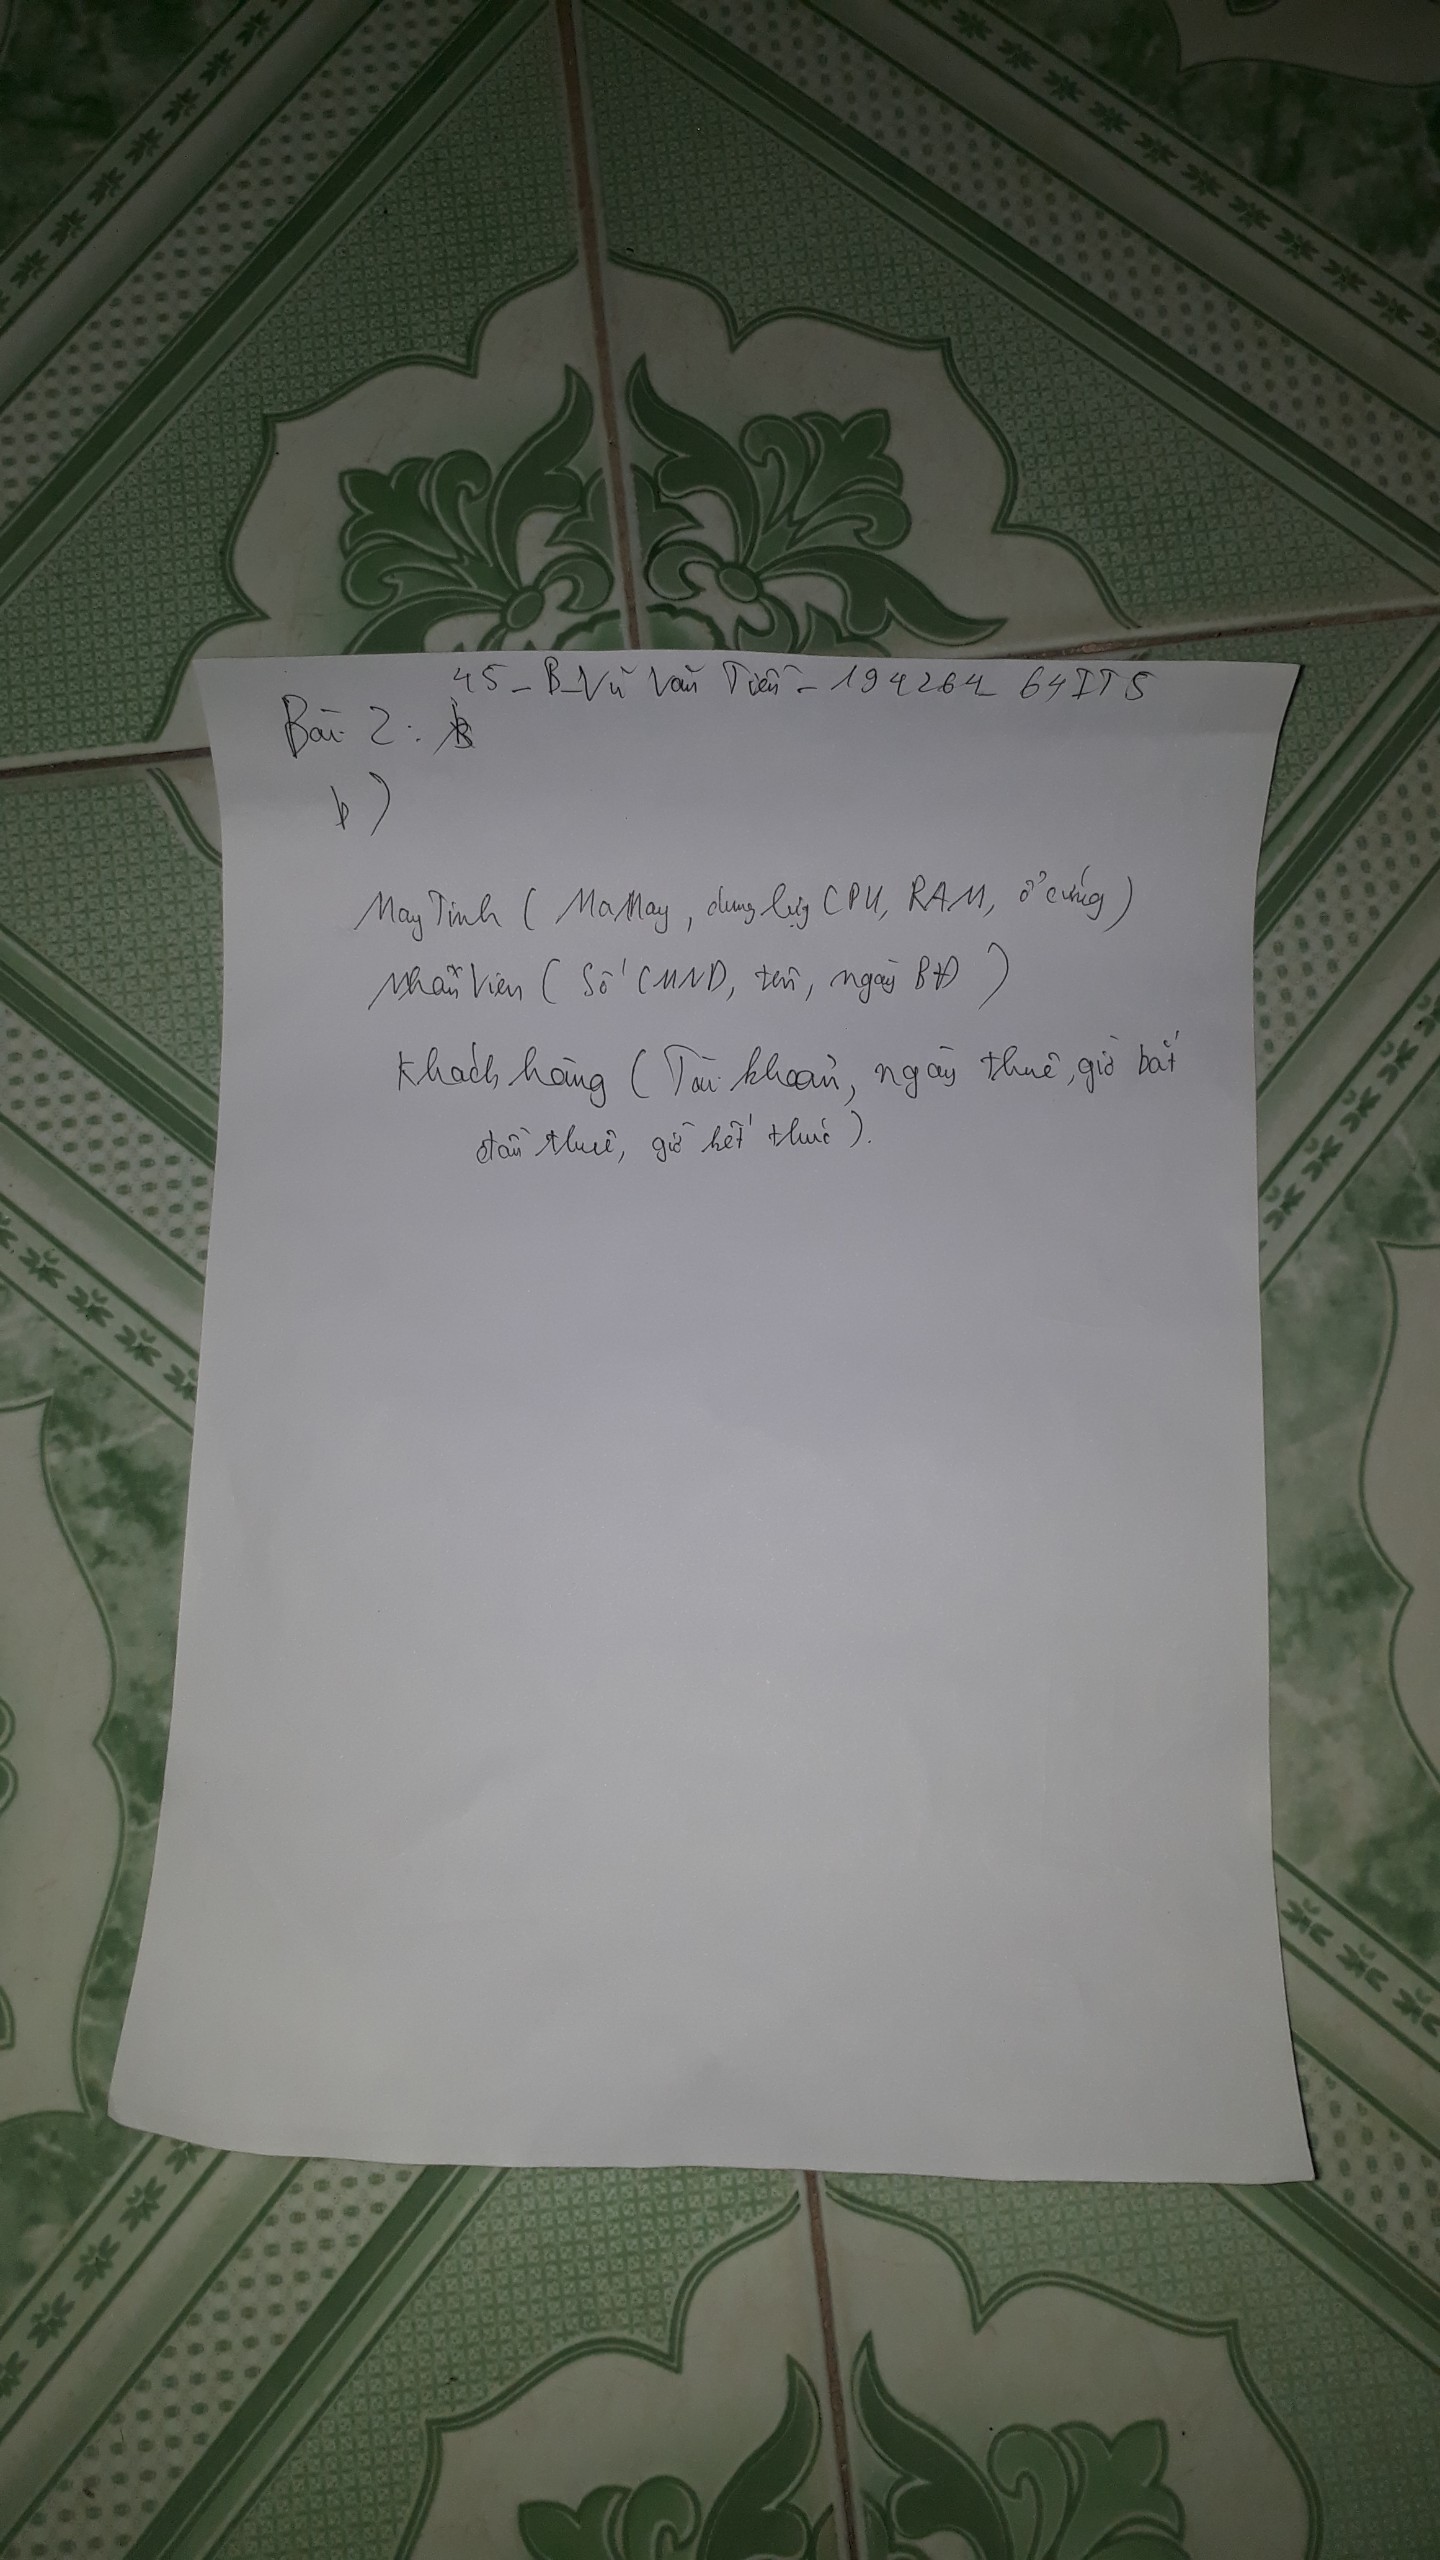 45-B-Vũ Văn Tiến-194264 64IT5
Bài 2:
b)
MayTinh ( MaMay, dung lượng CPU, RAM, ổ cứng)
Nhân Viên ( Số CMND, tên, ngày BĐ )
Khách hàng ( Tài khoản, ngày thuê, giờ bắt
đầu thuê, giờ kết thúc).